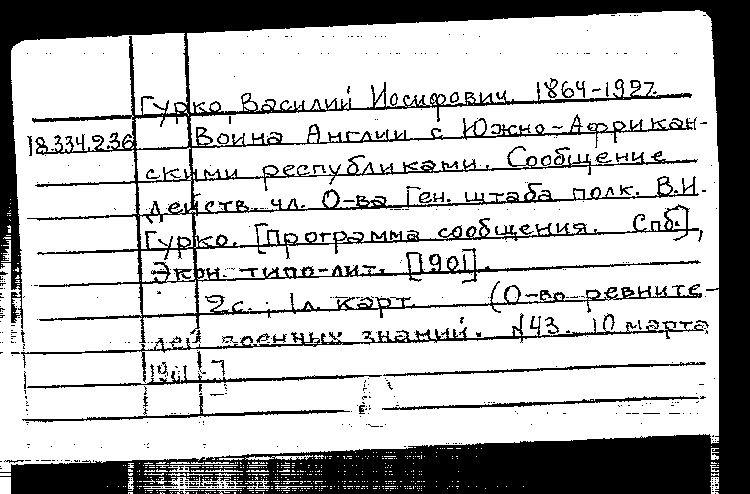 Гурко, Василий Иосифович. 1864-1937.
18.334.2.36 Война Англии с Южно-Африкан-
скими республиками. Сообщение
действ. чл. О-ва Ген. штаба полк. В.И.
Гурко. [Программа сообщения. Спб.],
Экон. типо-лит. [1901].
2с.; 1л. карт. (О-во ревните-
лей военных знаний. №43. 10 марта
1901 г.]